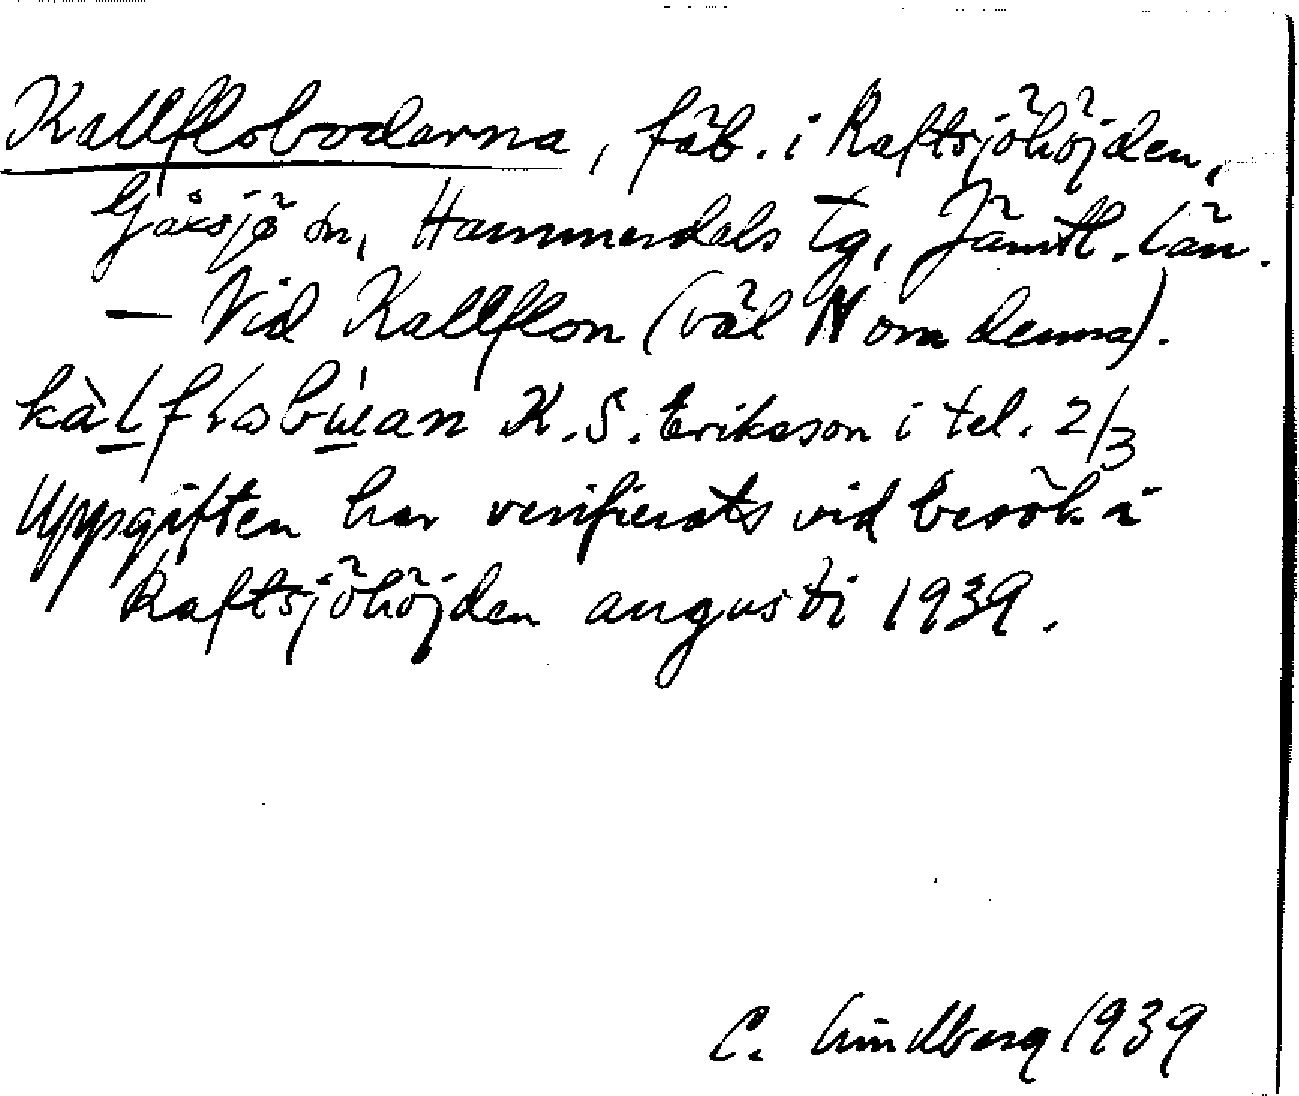 Kallflobodarna, fäb. i Raftsjöhöjden,
Gåxsjö sn, Hammerdals tg, Jämtl. län.
— Vid Kallflon (väl N om denna).
kàlfɭobúean K. S. Eriksson i tel. 2/3
Uppgiften har verifierats vid besök i
Raftsjöhöjden augusti 1939.
C. Lindberg 1939